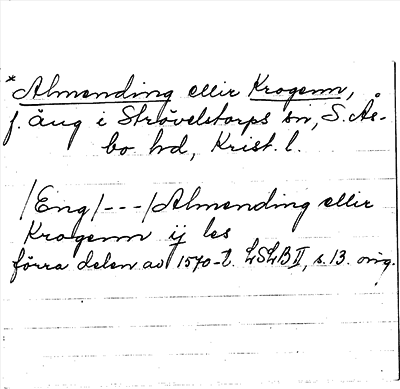 *Almending ellir Krogenn,
f. äng i Strövelstorps sn, S. Ås-
bo hd, Krist. l.
/Eng/---/Almending ellir
Krogenn ij les
förra delen av 1570-t. LSLB II, s. 13. orig.